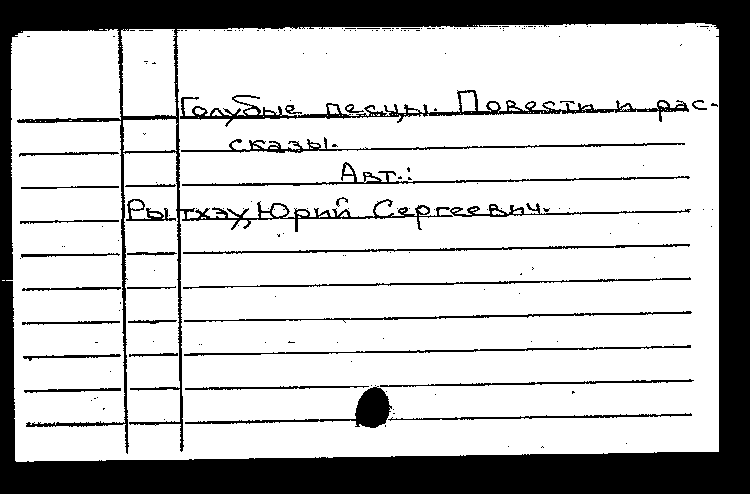 Голубые песцы. Повести и рас-
сказы.
Авт.:
Рытхэу, Юрий Сергеевич.